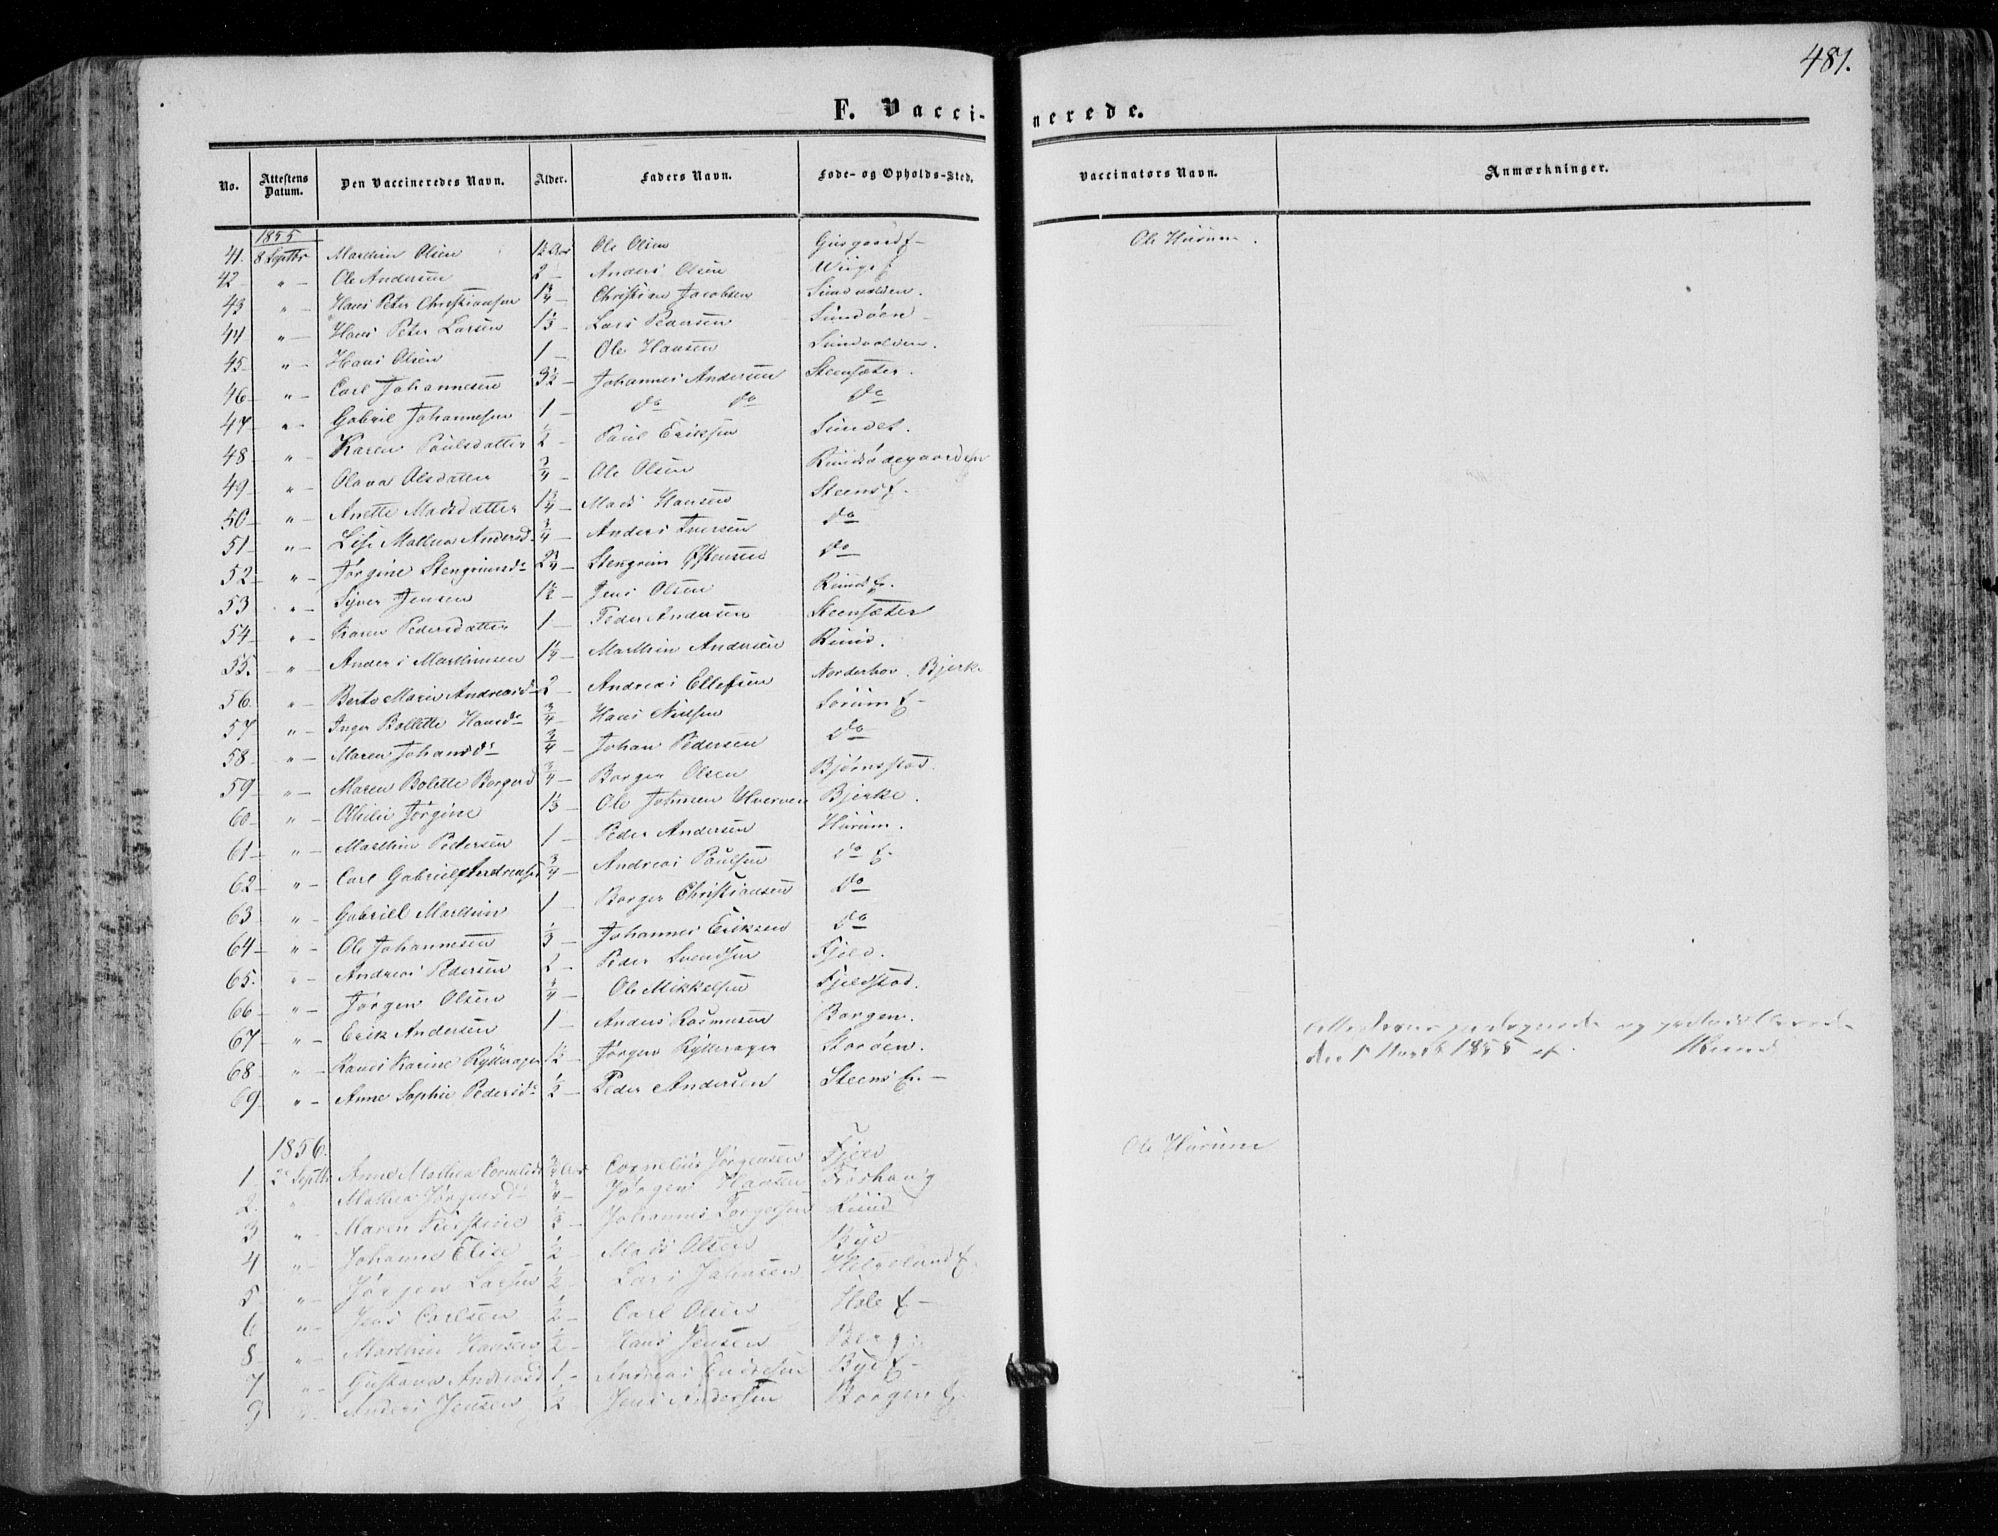 481.
F. Vaccinerede.
No. Attestens Datum. Den Vaccineredes Navn. Alder. Faders Navn. Føde- og Opholds-Sted. Vaccinators Navn. Anmærkninger.
1855
41. 8 Septbr Marthin Olsen 1½ Aar Ole Olsen Ole Hurum.
42 " – Ole Andersen 2 – Anders Olsen
43 " – Hans Peter Christiansen 1¾ – Christian Jacobsen Sundvolden.
44 " – Hans Peter Larsen 1⅓ – Lars Pedersen Sundøen
45 – " – Hans Olsen 1 – Ole Hansen Sundvolden.
46 – " – Carl Johannesen 3½ – Johannes Andersen Steensæter.
47 – " – Gabriel Johannesen 1 – do do do
48 – " – Karen Paulsdatter ½ – Paul Eriksen Sundet.
49 – " – Olava Olsdatter ¾ – Ole Olsen
50 – " – Anette Madsdatter 1¼ – Mads Hansen
51 – " – Lise Mathea Andersd. ¾ – Anders Iversen do
52 – " – Jørgine Stengrimsdr 2¼ – Stengrim Østensen do
53 " – Syver Jensen 1½ – Jens Olsen
54 – " – Karen Pedersdatter 1 – Peder Andersen Steensæter
55. " – Anders Marthinsen 1¼ – Marthin Andersen Ruud.
56. " – Berte Marie Andreasd – 2 – Andreas Ellefsen Norderhov. Bjerke
57 " – Inger Bollette Hansdr ¾ – Hans Nielsen
58 – " – Maren Johansdr ¾ – Johan Pedersen do
59 – " – Maren Bolette Borgersd ¾ – Borger Olsen Bjørnstad.
60 – " – Othilie Jørgine 1⅓ – Ole Johnsen Hverven Bjerke.
61 – " – Marthin Pedersen 1 – Peder Andersen Hurum.
62 – " – Carl Gabriel Andreasen ¾ – Andreas Paulsen
63 " – Gabriell Marthin 1 – Borger Christiansen do
64 – " – Ole Johannesen ⅓ – Johannes Eriksen do
65. " – Andreas Pedersen 2 – Peder Svendsen Fjeld.
66 – " – Jørgen Olsen ¾ – Ole Mikkelsen Fjeldstad.
67 – " – Erik Andersen 1 – Anders Rasmusen Borgen.
68 – " – Karine Rytterager 1½ – Jørgen Rytterager Storøen.
69 – " – Anne Sophie Pedersdr ½ – Peder Andersen
1856.
1 2 Septbr Anne Mathea Cornelisd ¾ Aar Cornelius Jørgensen Fjeld Ole Hurum
2. " Mathea Jørgensdr ¾ – Jørgen Hansen
3 " – Maren Kirstine ⅓ – Johannes Torgersen Ruud
4 " – Johanne Elise ½ – Mads Olsen Bye
5 " – Jørgen Larsen ½ – Lars Johnsen
6 " – Jens Carlsen ½ – Carl Olsen
8 – " – Marthin Hansen ½ – Hans Jensen Berg.
7 " – Gustava Andreasd 1 – Andreas
9 " – Anders Jensen ½ – Jens Andersen